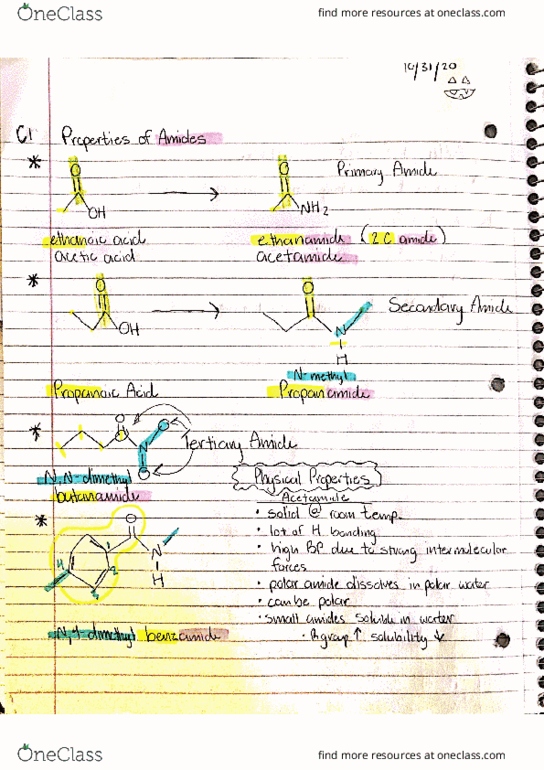 OneClass
find more resources at oneclass.com
10/31/20
C1 Properties of Amides
* O O Primary Amide
OH NH2
ethanoic acid ethanamide (2 C amide)
acetic acid acetamide
* O O Secondary Amide
OH N
H
N-methyl
Propanoic Acid Propanamide
* O Tertiary Amide
N
N,N-dimethyl Physical Properties
butanamide Acetamide
* • solid @ room temp.
O • lot of H bonding
1 N • high BP due to strong intermolecular
H forces
4 2 • polar amide dissolves in polar water
3 • can be polar
• small amides soluble in water
N,4-dimethyl benzamide • R group ↑ solubility ↓
OneClass
find more resources at oneclass.com